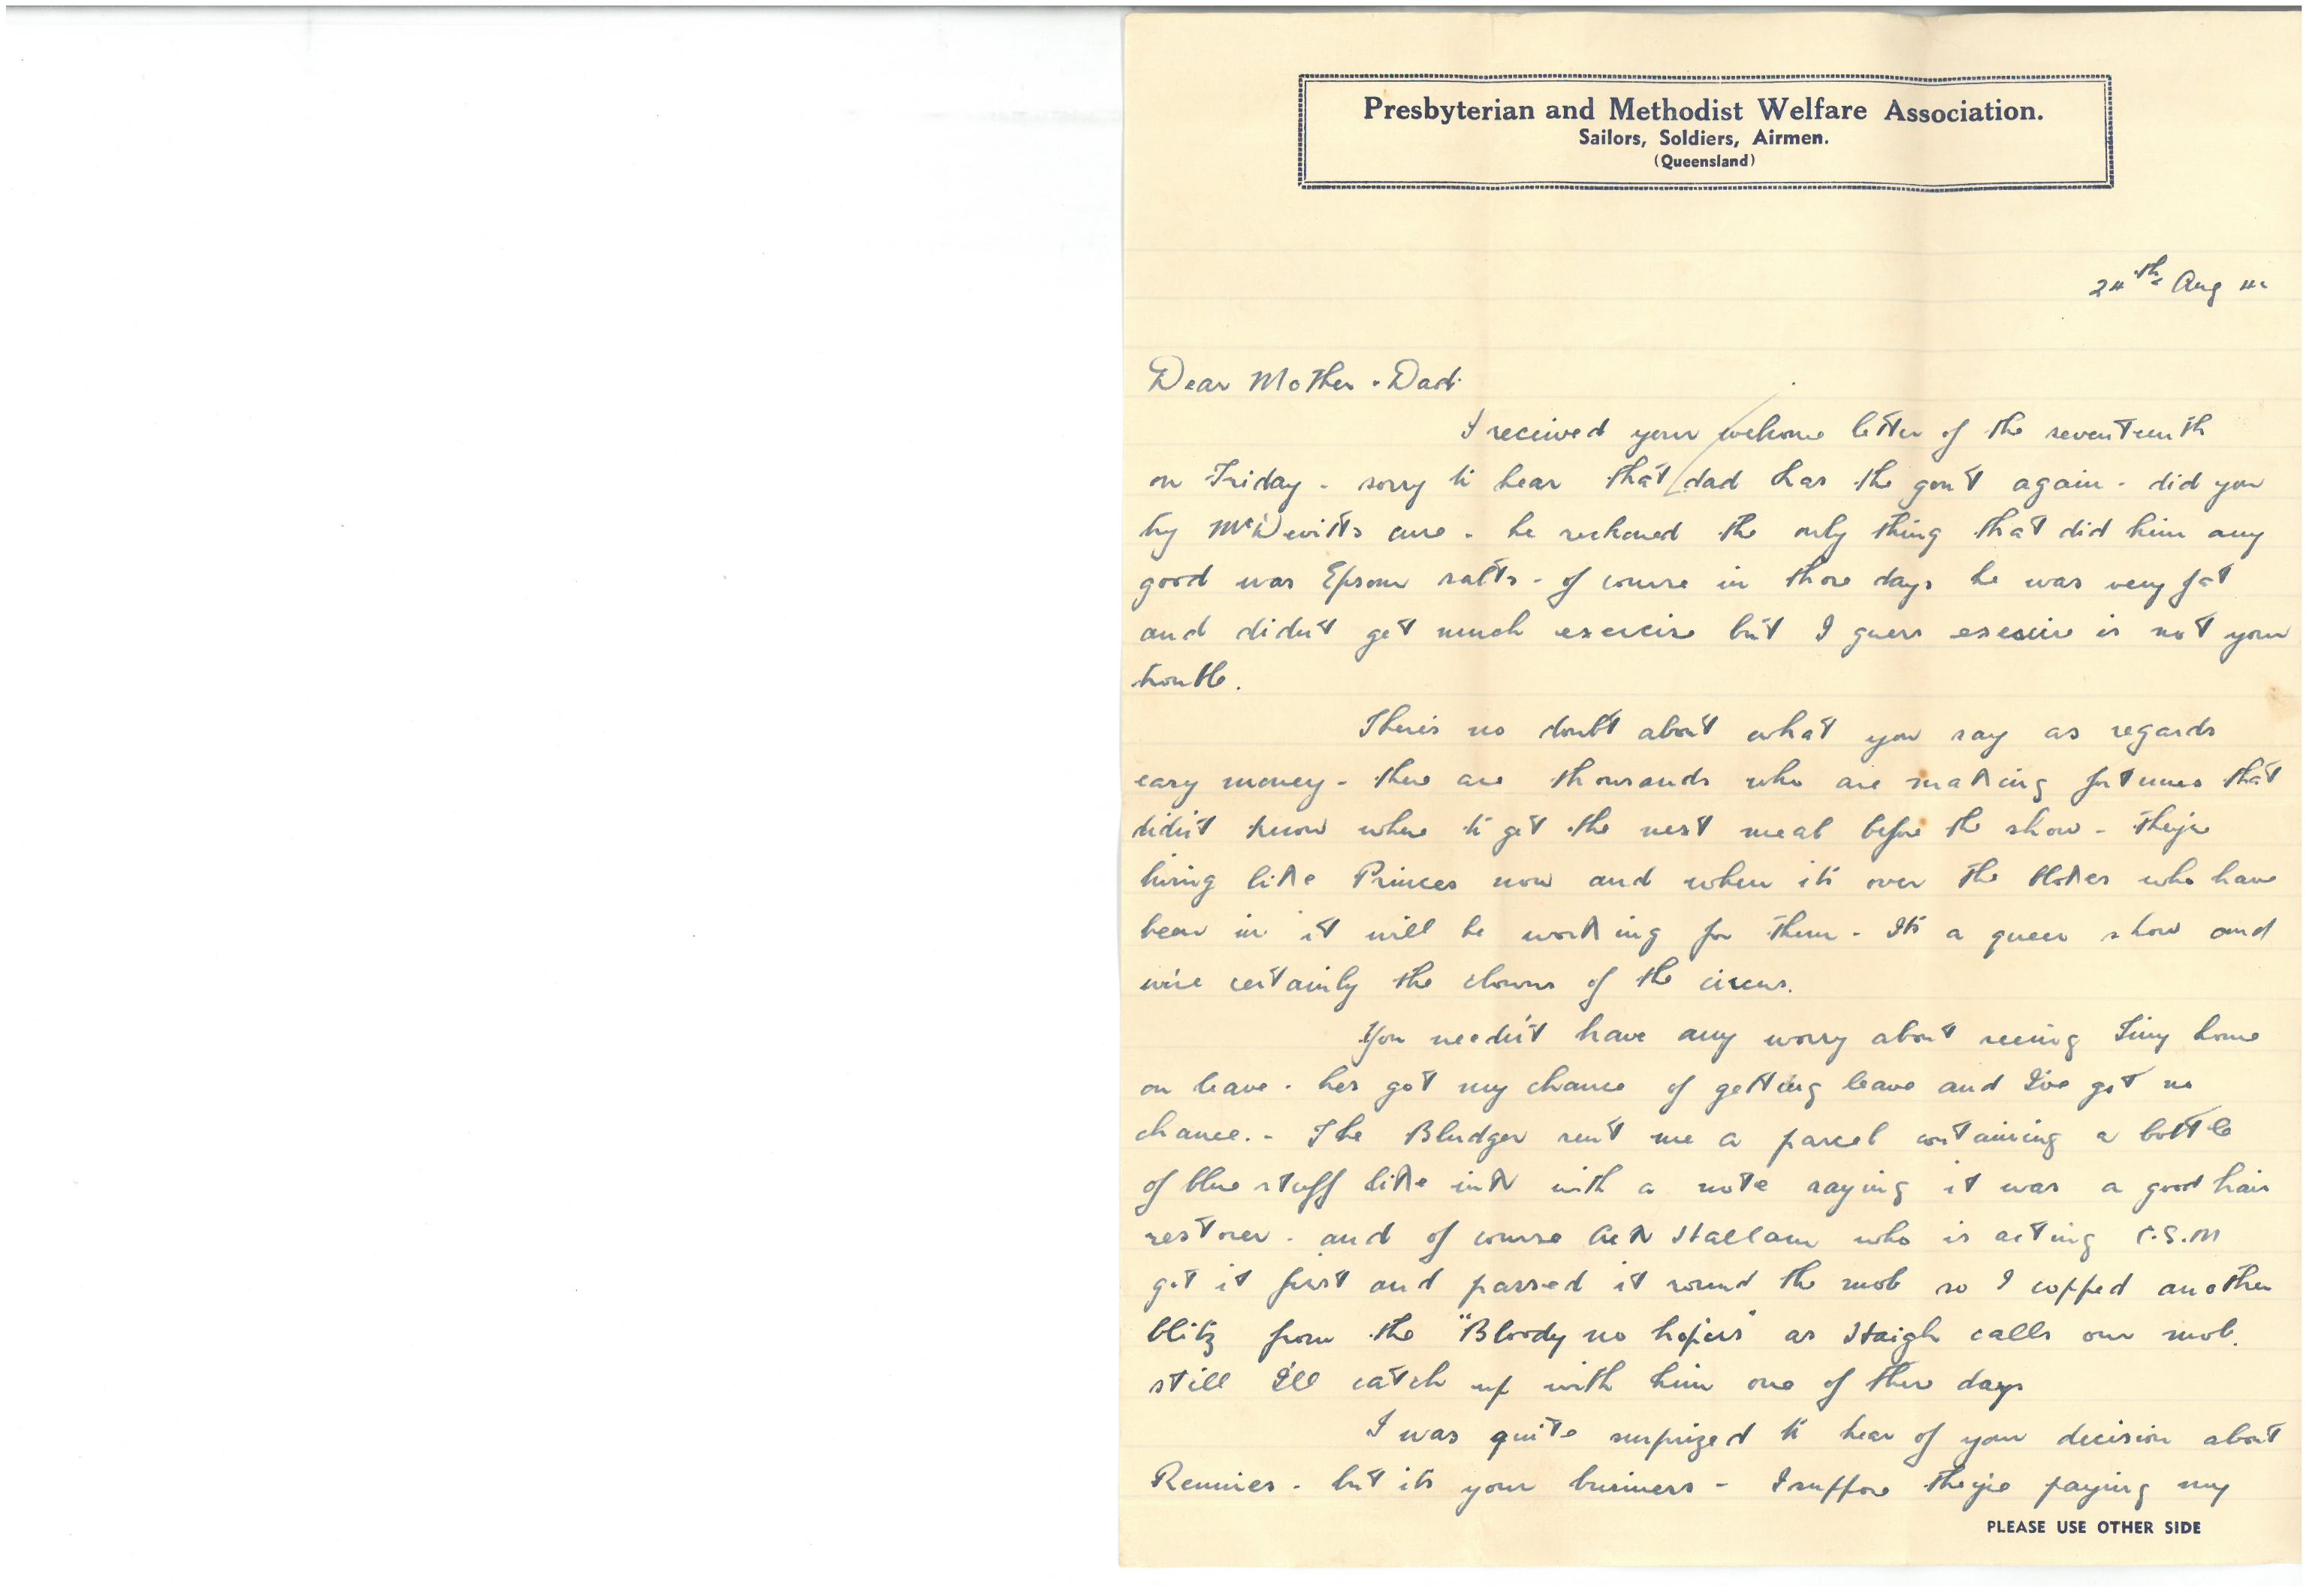 Presbyterian and Methodist Welfare Association.
Sailors, Soldiers, Airmen.
(Queensland)
24th Aug
Dear Mother & Dad
I received your welcome letter of the seventeenth
on Friday - sorry to hear that dad has the gout again - did you
try McDevitts cure - he reckoned the only thing that did him any
good was Epsom salts - of course in those days he was very fat
and didn't get much exercise but I guess exercise is not your
trouble.
There's no doubt about what you say as regards
easy money - there are thousands who are making fortunes that
didn't know where to get the next meal before the show - they're
living like Princes now and when it's over the blokes who have
been in it will be working for them - It's a queer show and
we're certainly the clowns of the circus.
You needn't have any worry about seeing Tiny home
on leave - he's got my chance of getting leave and I've got no
chance. - The Bludger sent me a parcel containing a bottle
of blue stuff like ink with a note saying it was a good hair
restorer - and of course Hallam who is acting C.S.M
got it first and passed it round the mob so I copped another
blitz from the "Bloody no hopers" as Haigh calls our mob.
still I'll catch up with him one of these days
I was quite surprized to hear of your decision about
Rennies - but its your business - I suppose they're paying my
PLEASE USE OTHER SIDE